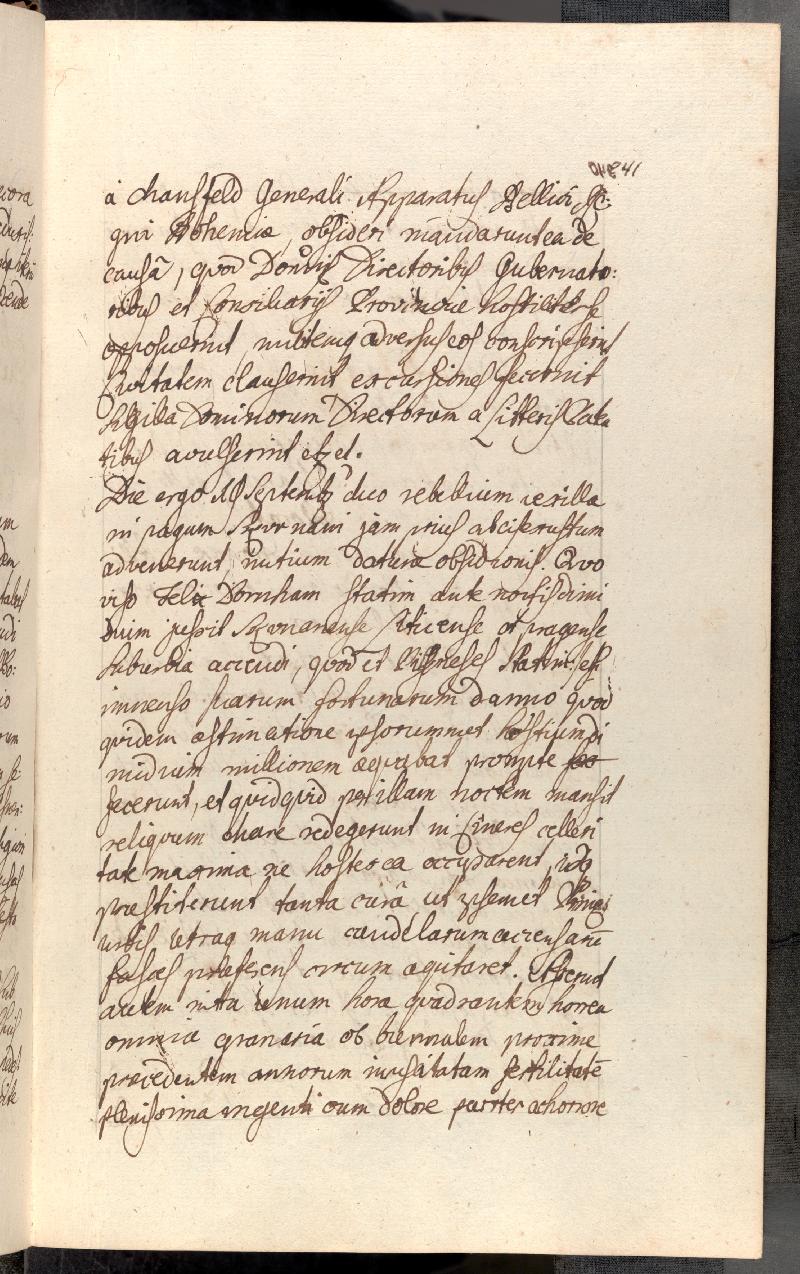 41
à Mansfeld Generali Apparatus Bellici Re:
gni Bohemiæ, obsideri mandarunt ea de
causâ, quod Dominis Directoribus Gubernato:
ribus et Consiliarijs Provinciæ hostiliter se
opposuerint, militemq adversus eos conscripserint
Civitatem clauserint excursiones fecerint
Sigilla Dominorum Directorum a Litteris Paten
tibus avulserint etz et.
Die ergo 19 Septemb duo rebellium vexilla
in pagum Skvrnani jam prius
advenerunt, initium datura obsidionis. Quo
viso Felix Dornham statim ante noctis dimi
dium jussit Skvrnanense Liticense et pragense
suburbia accendi, quod et Pilsnenses statim, etsi
immenso suarum fortunarum damno quod
quidem æstimatione ipsorummet hostium di
midium millionem æquabat prompte fec
fecerunt, et quidquid per illam noctem mansit
reliquum mane redegerunt in Cineres celleri
tate maxima ne hostes ea occuparent, idq
præstiterunt tanta curâ ut ipsemet Primas
urbis utraq manu candelarum accensarū
fasces præferens circum equitaret. Arserunt
autem intra unum hora quadrantem horrea
omnia granaria ob biennalem proxime
præcedentem annorum inusitatam fertilitatē
plenissima ingenti cum dolore pariter ac horrore